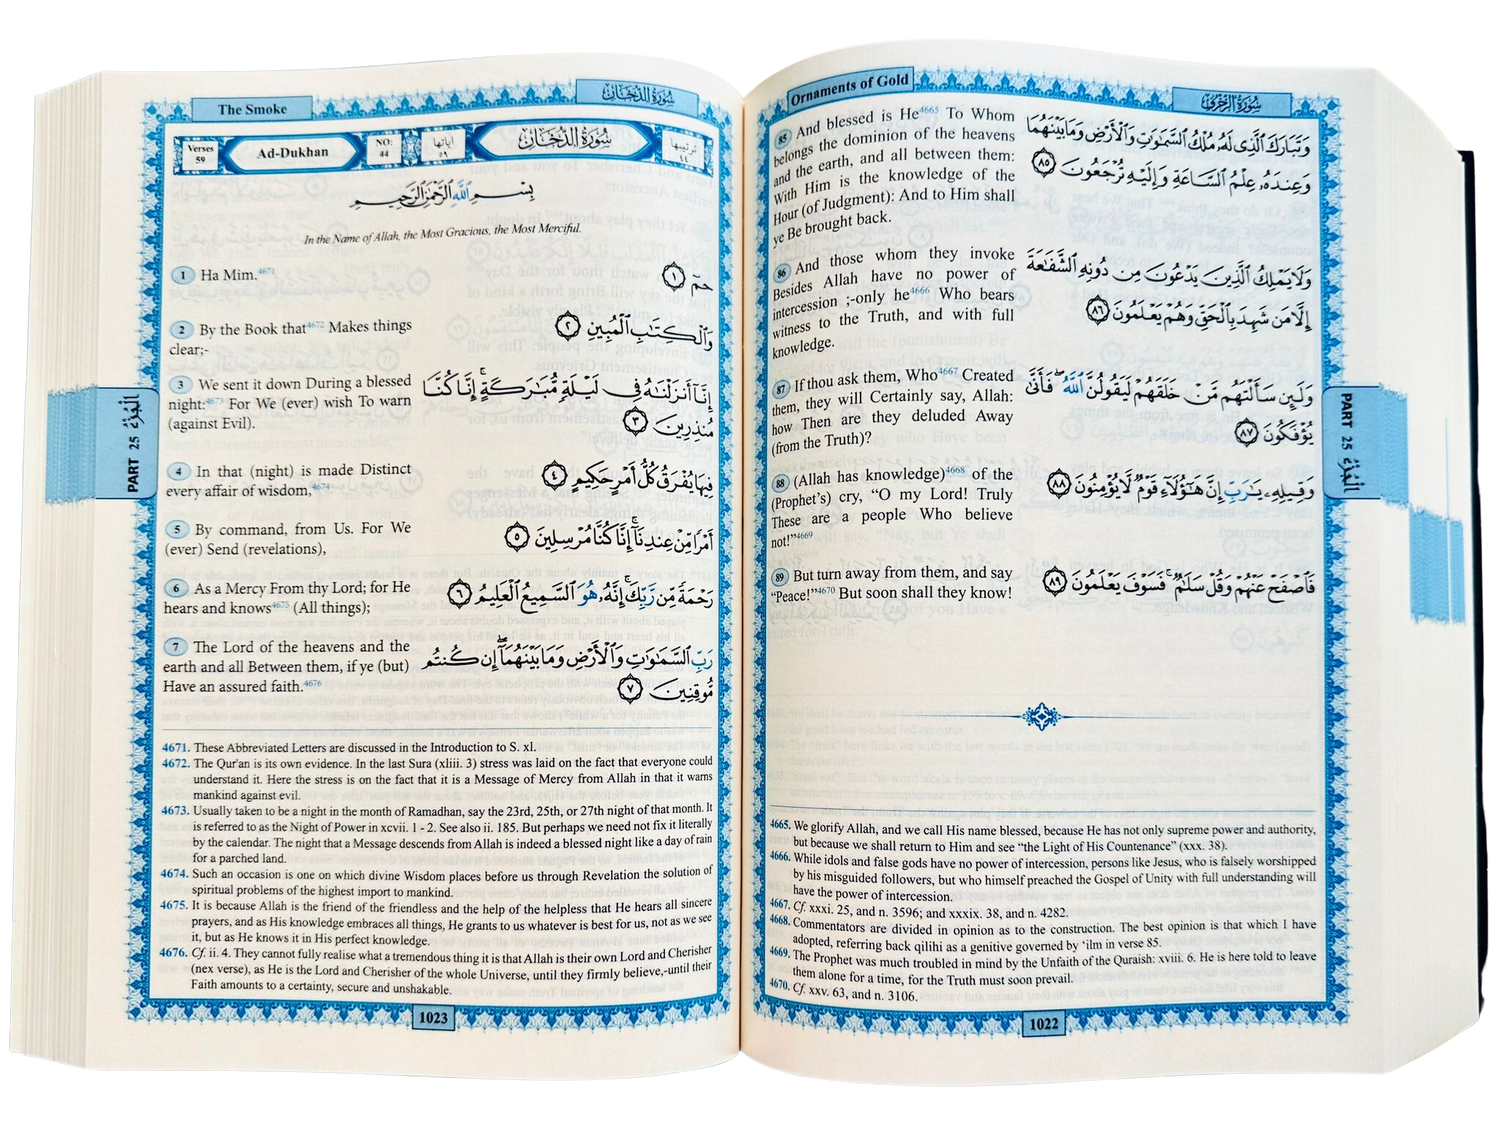 Ornaments of Gold
سُورَةُ الزُّخْرُفِ
85 And blessed is He4665 To Whom
belongs the dominion of the heavens
and the earth, and all between them:
With Him is the knowledge of the
Hour (of Judgment): And to Him shall
ye Be brought back.
وَتَبَارَكَ ٱلَّذِى لَهُۥ مُلْكُ ٱلسَّمَٰوَٰتِ وَٱلْأَرْضِ وَمَا بَيْنَهُمَا
وَعِندَهُۥ عِلْمُ ٱلسَّاعَةِ وَإِلَيْهِ تُرْجَعُونَ ٨٥
86 And those whom they invoke
Besides Allah have no power of
intercession ;-only he4666 Who bears
witness to the Truth, and with full
knowledge.
وَلَا يَمْلِكُ ٱلَّذِينَ يَدْعُونَ مِن دُونِهِ ٱلشَّفَٰعَةَ
إِلَّا مَن شَهِدَ بِٱلْحَقِّ وَهُمْ يَعْلَمُونَ ٨٦
87 If thou ask them, Who4667 Created
them, they will Certainly say, Allah:
how Then are they deluded Away
(from the Truth)?
وَلَئِن سَأَلْتَهُم مَّنْ خَلَقَهُمْ لَيَقُولُنَّ ٱللَّهُ ۖ فَأَنَّىٰ
يُؤْفَكُونَ ٨٧
88 (Allah has knowledge)4668 of the
(Prophet's) cry, “O my Lord! Truly
These are a people Who believe
not!”4669
وَقِيلِهِۦ يَٰرَبِّ إِنَّ هَٰٓؤُلَآءِ قَوْمٌ لَّا يُؤْمِنُونَ ٨٨
89 But turn away from them, and say
“Peace!”4670 But soon shall they know!
فَٱصْفَحْ عَنْهُمْ وَقُلْ سَلَٰمٌ ۚ فَسَوْفَ يَعْلَمُونَ ٨٩
4665. We glorify Allah, and we call His name blessed, because He has not only supreme power and authority,
but because we shall return to Him and see “the Light of His Countenance” (xxx. 38).
4666. While idols and false gods have no power of intercession, persons like Jesus, who is falsely worshipped
by his misguided followers, but who himself preached the Gospel of Unity with full understanding will
have the power of intercession.
4667. Cf. xxxi. 25, and n. 3596; and xxxix. 38, and n. 4282.
4668. Commentators are divided in opinion as to the construction. The best opinion is that which I have
adopted, referring back qilihi as a genitive governed by ‘ilm in verse 85.
4669. The Prophet was much troubled in mind by the Unfaith of the Quraish: xviii. 6. He is here told to leave
them alone for a time, for the Truth must soon prevail.
4670. Cf. xxv. 63, and n. 3106.
1022
PART 25 الْجُزْءُ
The Smoke
سُورَةُ الدُّخَانِ
Verses
59
Ad-Dukhan
NO:
44
آياتها
٥٩
سُورَةُ الدُّخَانِ
ترتيبها
٤٤
بِسْمِ ٱللَّهِ ٱلرَّحْمَٰنِ ٱلرَّحِيمِ
In the Name of Allah, the Most Gracious, the Most Merciful.
1 Ha Mim.4671
حمٓ ١
2 By the Book that4672 Makes things
clear;-
وَٱلْكِتَٰبِ ٱلْمُبِينِ ٢
3 We sent it down During a blessed
night:4673 For We (ever) wish To warn
(against Evil).
إِنَّآ أَنزَلْنَٰهُ فِى لَيْلَةٍ مُّبَٰرَكَةٍ ۚ إِنَّا كُنَّا
مُنذِرِينَ ٣
4 In that (night) is made Distinct
every affair of wisdom,4674
فِيهَا يُفْرَقُ كُلُّ أَمْرٍ حَكِيمٍ ٤
5 By command, from Us. For We
(ever) Send (revelations),
أَمْرًا مِّنْ عِندِنَآ ۚ إِنَّا كُنَّا مُرْسِلِينَ ٥
6 As a Mercy From thy Lord; for He
hears and knows4675 (All things);
رَحْمَةً مِّن رَّبِّكَ ۚ إِنَّهُۥ هُوَ ٱلسَّمِيعُ ٱلْعَلِيمُ ٦
7 The Lord of the heavens and the
earth and all Between them, if ye (but)
Have an assured faith.4676
رَبِّ ٱلسَّمَٰوَٰتِ وَٱلْأَرْضِ وَمَا بَيْنَهُمَآ ۖ إِن كُنتُم
مُّوقِنِينَ ٧
4671. These Abbreviated Letters are discussed in the Introduction to S. xl.
4672. The Qur'an is its own evidence. In the last Sura (xliii. 3) stress was laid on the fact that everyone could
understand it. Here the stress is on the fact that it is a Message of Mercy from Allah in that it warns
mankind against evil.
4673. Usually taken to be a night in the month of Ramadhan, say the 23rd, 25th, or 27th night of that month. It
is referred to as the Night of Power in xcvii. 1 - 2. See also ii. 185. But perhaps we need not fix it literally
by the calendar. The night that a Message descends from Allah is indeed a blessed night like a day of rain
for a parched land.
4674. Such an occasion is one on which divine Wisdom places before us through Revelation the solution of
spiritual problems of the highest import to mankind.
4675. It is because Allah is the friend of the friendless and the help of the helpless that He hears all sincere
prayers, and as His knowledge embraces all things, He grants to us whatever is best for us, not as we see
it, but as He knows it in His perfect knowledge.
4676. Cf. ii. 4. They cannot fully realise what a tremendous thing it is that Allah is their own Lord and Cherisher
(nex verse), as He is the Lord and Cherisher of the whole Universe, until they firmly believe,-until their
Faith amounts to a certainty, secure and unshakable.
1023
PART 25 الْجُزْءُ